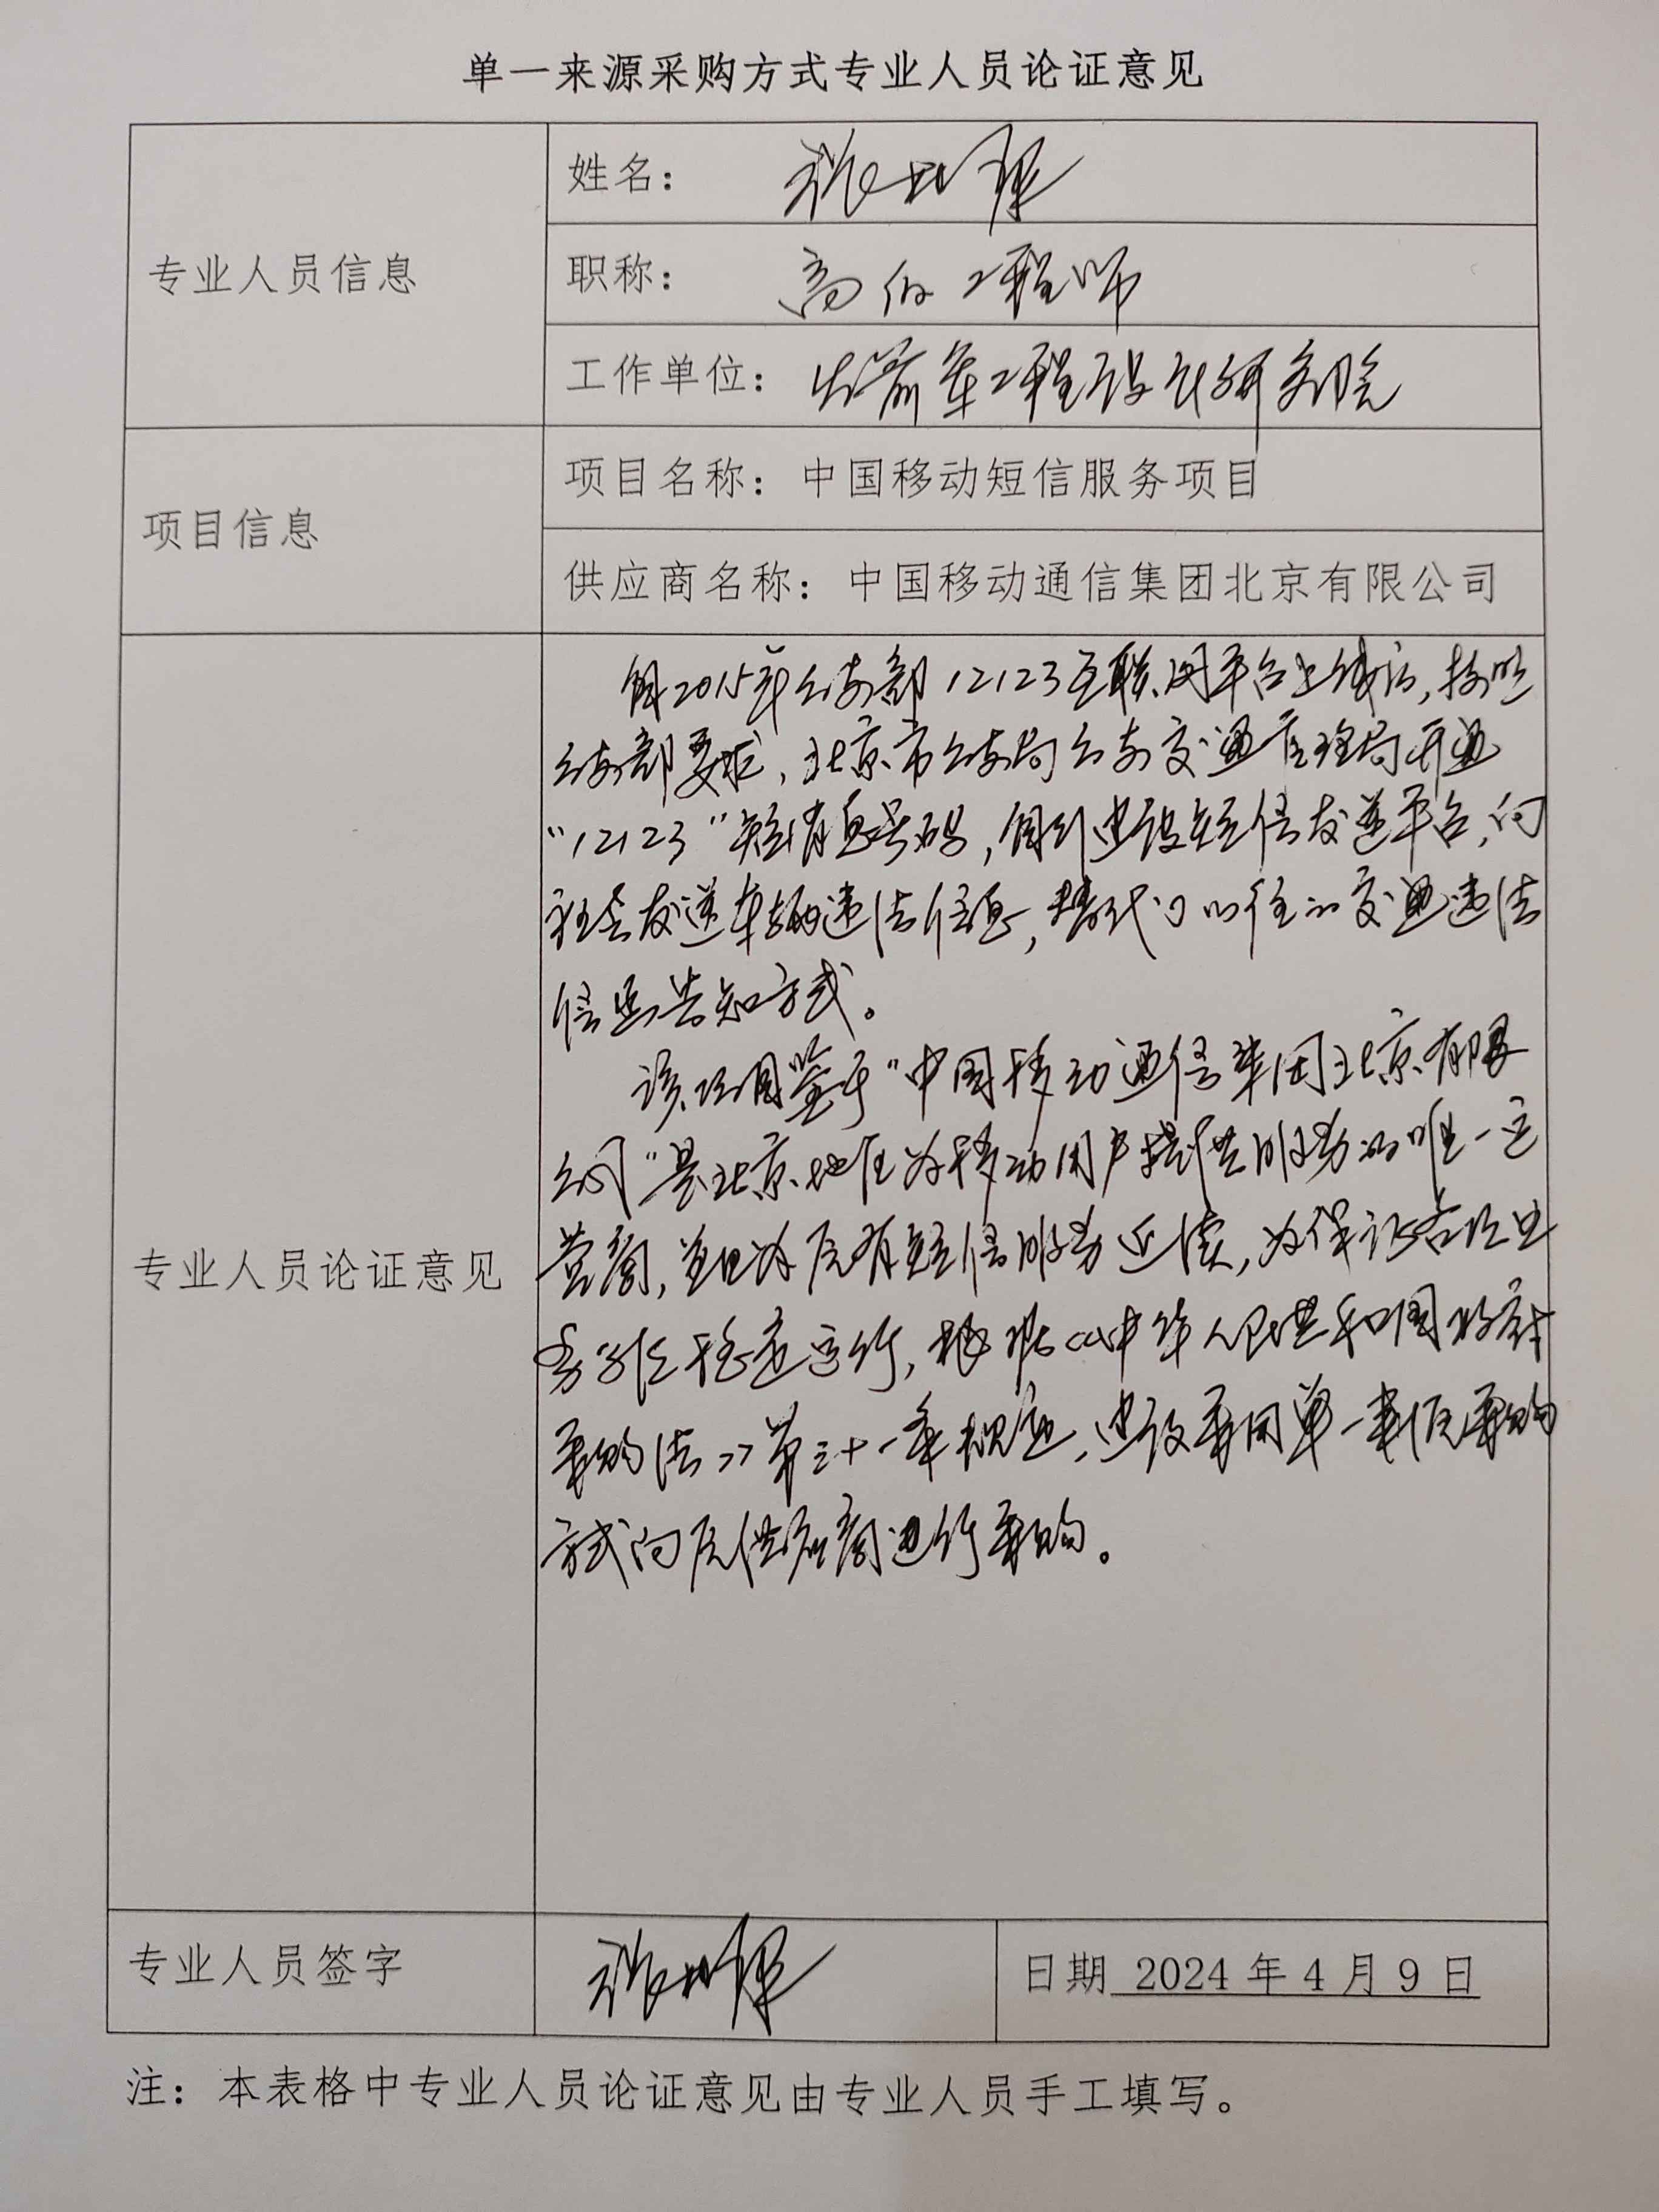 单一来源采购方式专业人员论证意见
专业人员信息
姓名：
职称：高级工程师
工作单位：工程设计研究院
项目信息
项目名称：中国移动短信服务项目
供应商名称：中国移动通信集团北京有限公司
专业人员论证意见
自2015年公安部12123互联网平台上线后，按照
公安部要求，北京市公安局公安交通管理局开通
“12123”短消息号码，自行建设短信发送平台，向
社会发送车辆违法信息，替代了以往的交通违法
信息告知方式。
该项目鉴于“中国移动通信集团北京有限
公司”是北京地区为移动用户提供服务的唯一运
营商，并且为原有短信服务延续，为保证各项业
务工作稳定运行，根据《中华人民共和国政府
采购法》第三十一条规定，建议采用单一来源采购
方式向原供应商进行采购。
专业人员签字
日期 2024 年 4 月 9 日
注：本表格中专业人员论证意见由专业人员手工填写。